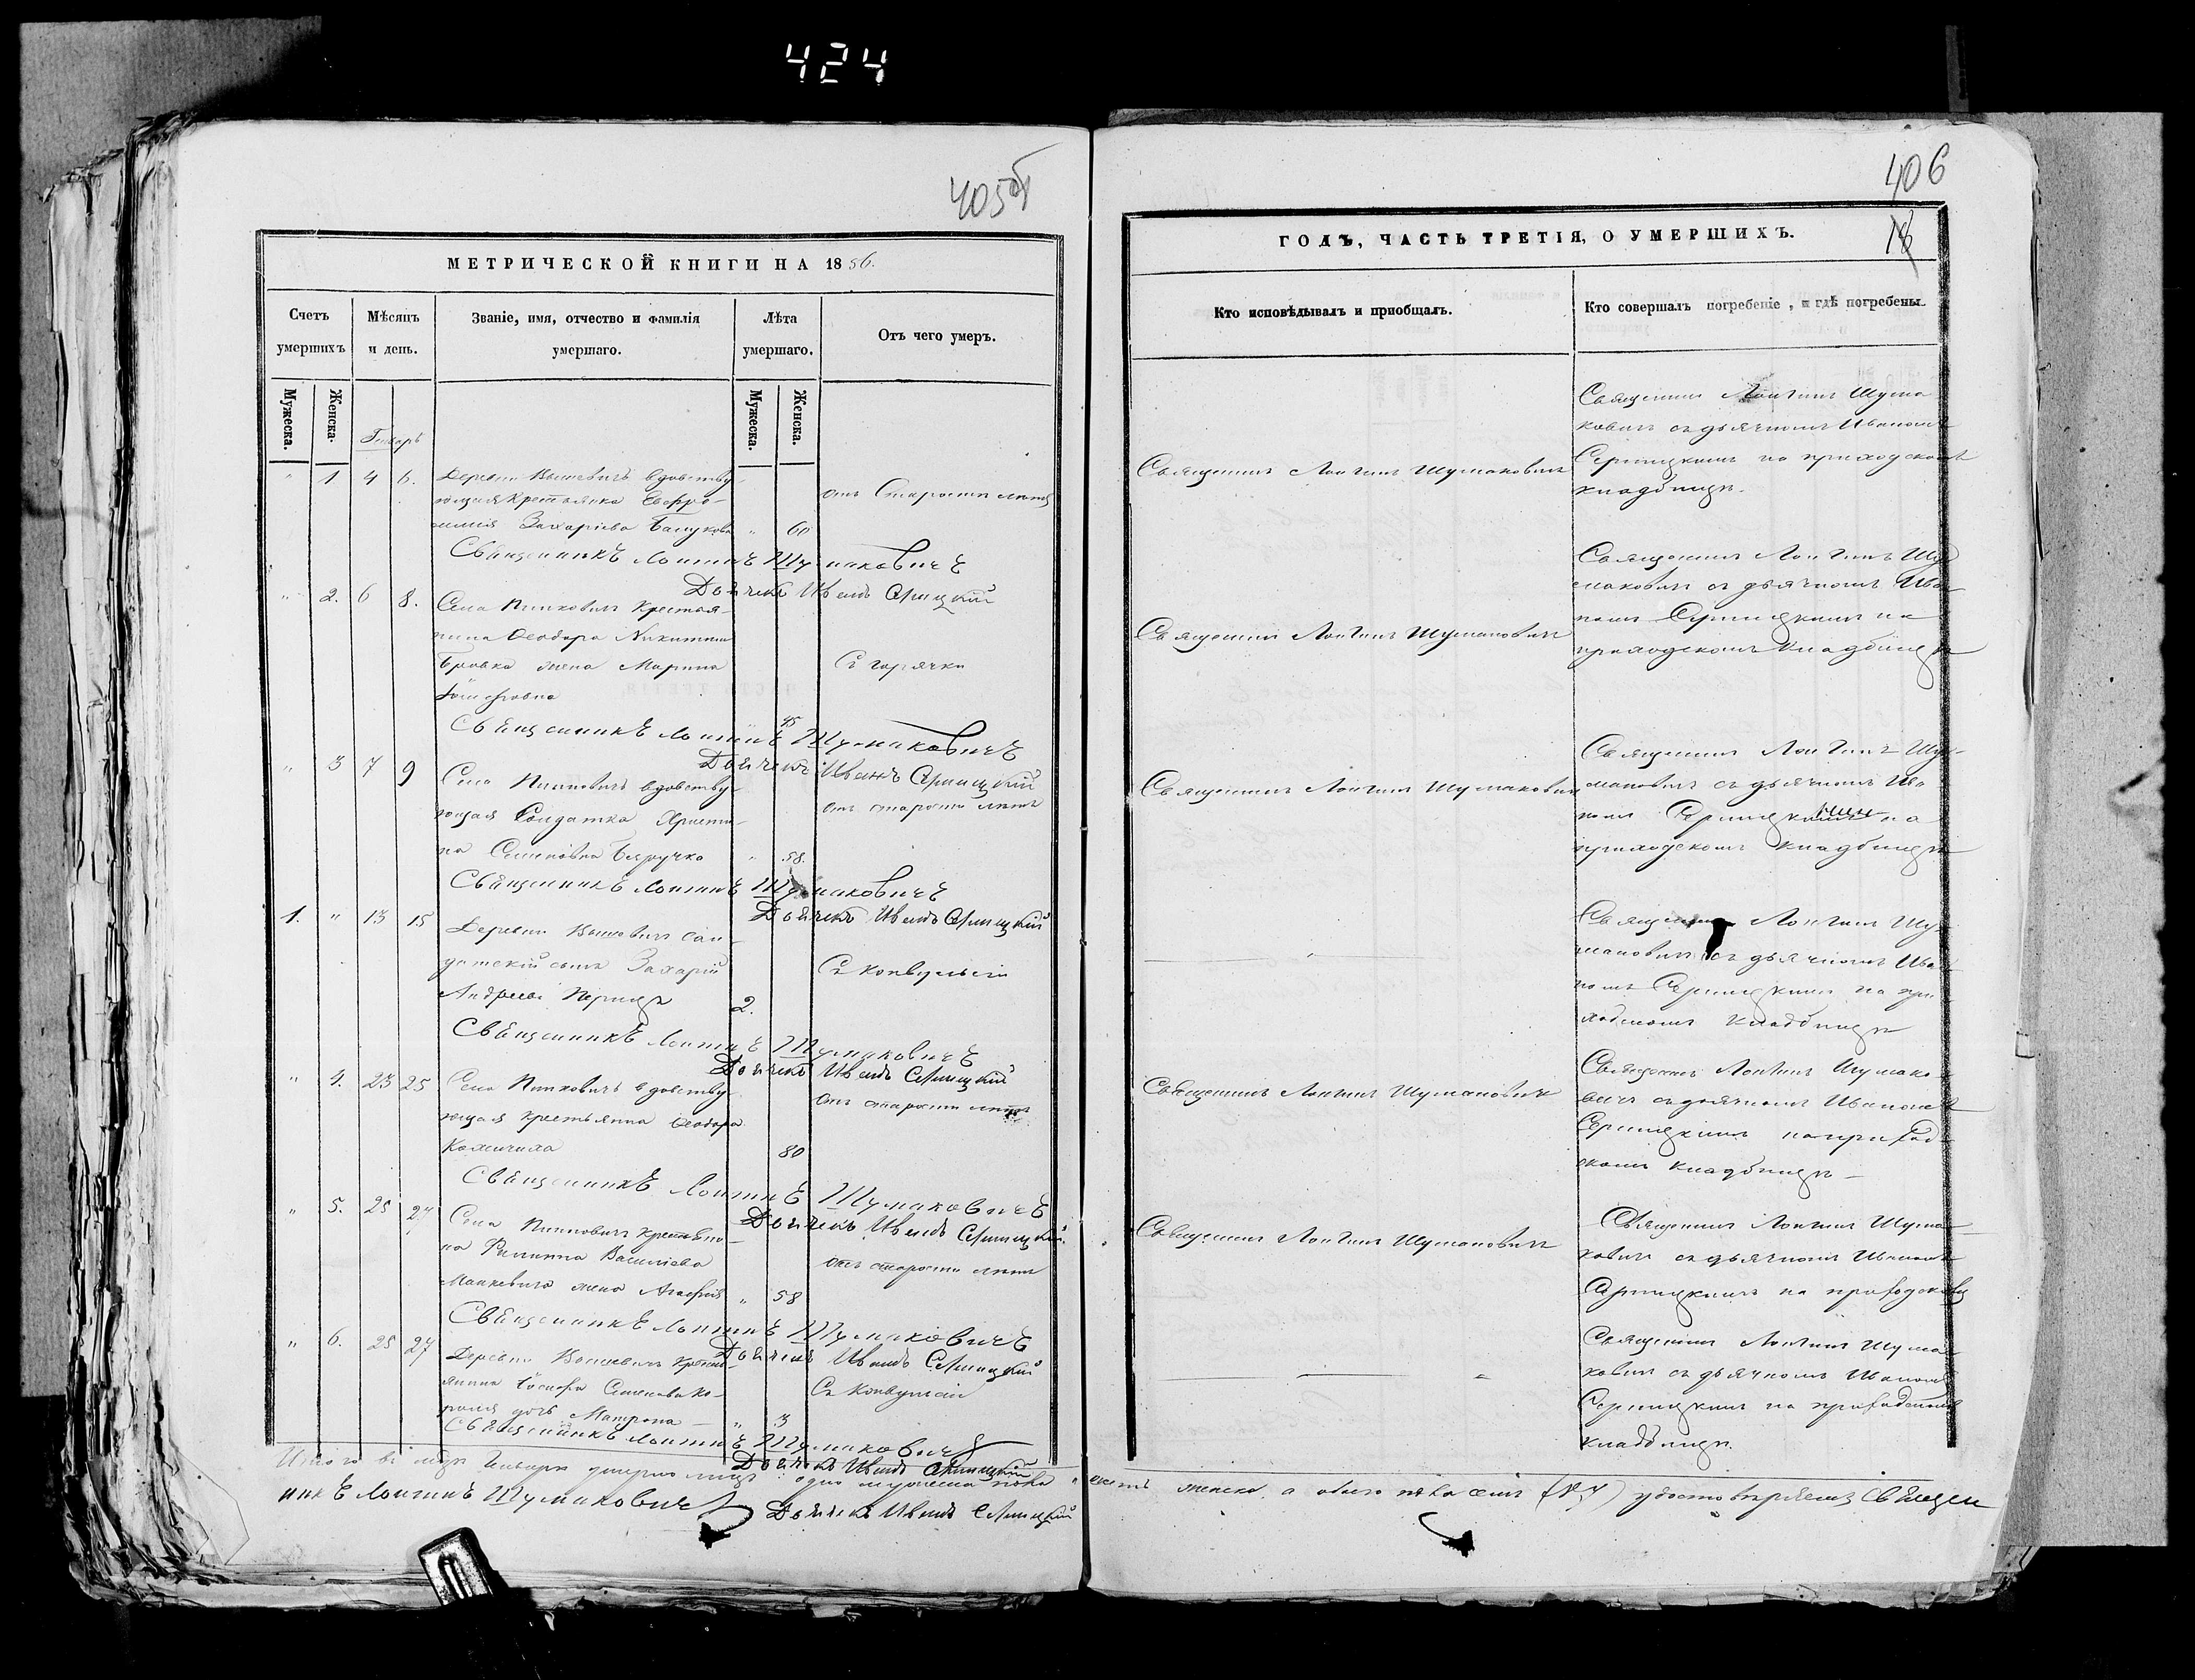 424
405об
МЕТРИЧЕСКОЙ КНИГИ НА 1856.
Счетъ умершихъ
Мѣсяцъ и день.
Званіе, имя, отчество и фамилія умершаго.
Лѣта умершаго.
Отъ чего умеръ.
Мужеска.
Женска.
Мужеска.
Женска.
Генварь
" 1 4 6. Деревни Вышевичъ вдовству-
ющая Крестьянка Евфро-
синия Захаріева " 60
отъ Старости лѣтъ
Священникъ Лонгинъ Шумаковичъ
Дьячекъ Иванъ
" 2. 6 8. Села Пинковичъ Крестья-
нина Ѳеодора Никитина
Бровка жена Марина
45
Съ горячки
Священникъ Лонгинъ Шумаковичъ
Дьячекъ Иванъ
" 3 7 9 Села Пинковичъ вдовству-
ющая Солдатка Христи-
на Семеновна " 58.
отъ старости лѣтъ
Священникъ Лонгинъ Шумаковичъ
Дьячекъ Иванъ
1. " 13 15 Деревни Вышевичъ сол-
датскій сынъ Захарій
Андреевъ 2.
Съ конвульсіи
Священникъ Лонгинъ Шумаковичъ
Дьячекъ Иванъ
" 4. 23 25 Села Пинковичъ вдовству
ющая крестьянка Ѳеодора
80
отъ старости лѣтъ
Священникъ Лонгинъ Шумаковичъ
Дьячекъ Иванъ
" 5. 25 27 Села Пинковичъ крестьяни-
на Филиппа Василіева
жена Агафія " 58
отъ старости лѣтъ
Священникъ Лонгинъ Шумаковичъ
Дьячекъ Иванъ
" 6. 25 27 Деревни Вышевичъ крестья-
нина Іосифа Семенова Ко-
роля дочь Матрона " 3
Съ Конвульсіи
Священникъ Лонгинъ Шумаковичъ
Дьячекъ Иванъ
Итого въ Генварѣ умерло одно мужеска пола
никъ Лонгинъ Шумаковичъ
Дьячекъ Иванъ
406
ГОДЪ, ЧАСТЬ ТРЕТІЯ, О УМЕРШИХЪ.
Кто исповѣдывалъ и пріобщалъ.
Кто совершалъ погребеніе, и гдѣ погребены.
Священникъ Лонгинъ Шумаковичъ
Священникъ Лонгинъ Шума
ковичъ съ дьячкомъ Иваномъ
на приходскомъ
кладбищѣ.
Священникъ Лонгинъ Шумаковичъ
Священникъ Лонгинъ Шу
маковичъ съ дьячкомъ Ива-
номъ на
приходскомъ кладбищѣ
Священникъ Лонгинъ Шумаковичъ
Священникъ Лонгинъ Шу-
маковичъ съ дьячкомъ Ива
номъ на
приходскомъ кладбищѣ
Священникъ Лонгинъ Шу-
маковичъ съ дьячкомъ Ива
номъ на при
ходскомъ кладбищѣ
Священникъ Лонгинъ Шумаковичъ
Священникъ Лонгинъ Шумако-
вичъ съ дьячкомъ Иваномъ
на приход-
скомъ кладбищѣ
Священникъ Лонгинъ Шумаковичъ
Священникъ Лонгинъ Шума
ковичъ съ дьячкомъ Иваномъ
на приходскомъ
Священникъ Лонгинъ Шума
ковичъ съ дьячкомъ Иваномъ
на приходскомъ
кладбищѣ.
шесть женска, а обоего пола семь (№ 7) удостовѣряемъ Священ